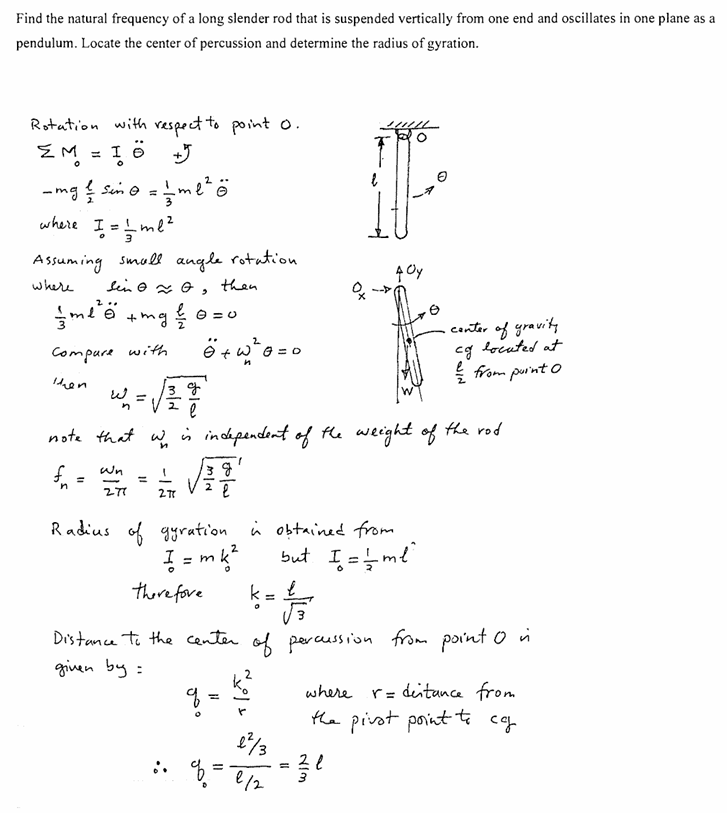 Find the natural frequency of a long slender rod that is suspended vertically from one end and oscillates in one plane as a
pendulum. Locate the center of percussion and determine the radius of gyration.
Rotation with respect to point O.
ΣM₀ = I₀ θ̈ +↺
-mg l/2 sin θ = 1/3 ml² θ̈
where I₀ = 1/3 ml²
Assuming small angle rotation
where sin θ ≈ θ, then
1/3 ml² θ̈ + mg l/2 θ = 0
compare with θ̈ + ωₙ² θ = 0
then ωₙ = √(3/2 g/l)
O
l
θ
Oy
Ox
θ
center of gravity
cg located at
l/2 from point O
W
note that ωₙ is independent of the weight of the rod
fₙ = ωₙ/2π = 1/2π √(3/2 g/l)
Radius of gyration is obtained from
I₀ = m k₀² but I₀ = 1/2 ml^
therefore k₀ = l/√3
Distance to the center of percussion from point O is
given by:
q₀ = k₀²/r where r = distance from
the pivot point to cg
∴ q₀ = (l²/3)/(l/2) = 2/3 l